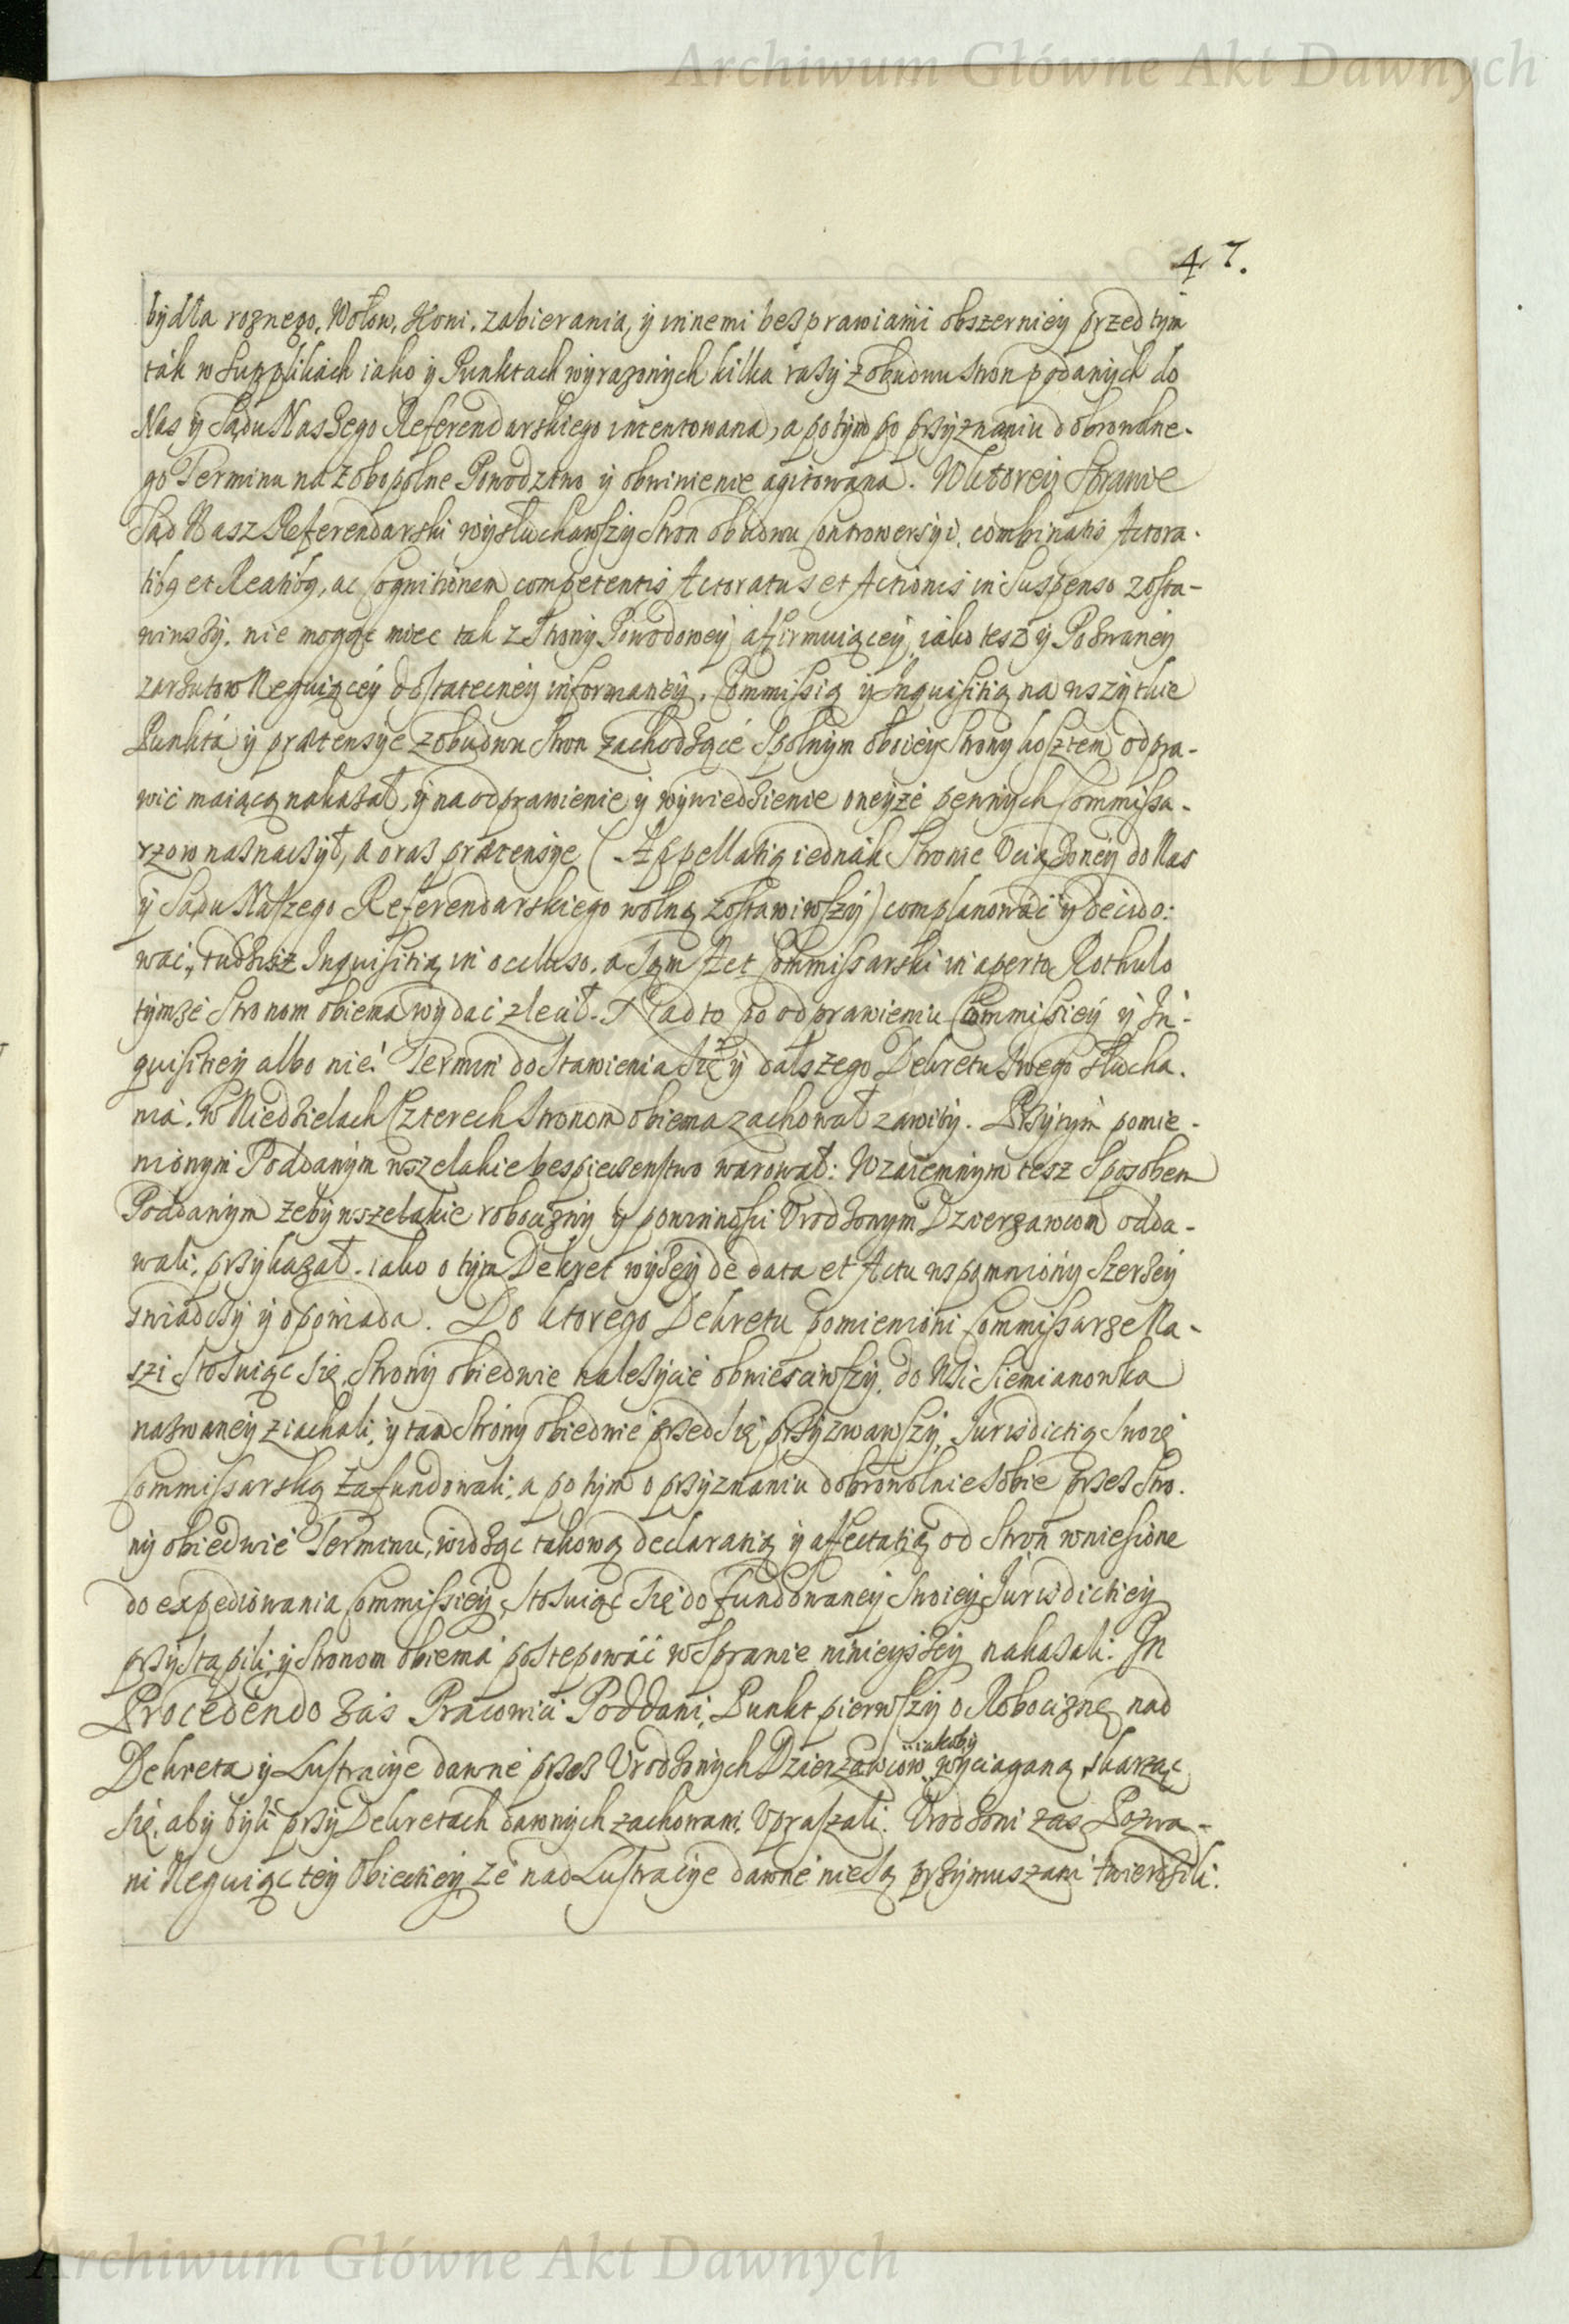 Archiwum Główne Akt Dawnych
47.
bydła roznego, Wołow, Koni, zabierania, y innemi bezprawiami obszerniey przed tym
tak w Supplikach iako y Punktach wyrazonych kilka razy z obudwu stron podanych do
Nas y Sądu Naszego Referendarskiego intentowana, a potym po przyznaniu dobrowolne-
go Terminu na zobopolne Powodztwo y obwinienie agitowana. W ktorey Sprawie
Sąd Nasz Referendarski wysłuchawszy Stron obudwu Controwersyi, combinatis Actora-
tibq et Reatibq, ac Cognitionem competentis Actoratus et Actionis in Suspenso zosta-
wiwszy, nie mogąc miec tak z Strony Powodowey affirmuiącey, iako tesz y Pozwaney
zarzutow Neguiącey dostateczney informaciey, Commissią y Inquisitią na wszytkie
Punkta y prætensye z obudwu Stron zachodzące Spolnym oboiey Strony kosztem odpra-
wić maiącą nakazał, y na odprawienie y wywiedzienie oneyże pewnych Commissa-
rzow naznaczył, a oraz prætensye (Appellatią iednak Stronie Uciązoney do Nas
y Sądu Naszego Referendarskiego wolną zostawiwszy) complanować y decido:
wać, tudzisz Inquisitią in occluso, a Sam Act Commissarski in aperto Rothulo
tymze Stronom obiema wydać zlecił. Nad to po odprawieniu Commissiey y In-
quisitiey albo nie: Termin do Stawienia Się y dalszego Dekretu Swego Słucha-
nia, w Niedzielach Czterech Stronom obiema zachował zawity. Przytym pomie-
nionym Poddanym wszelakie bespieczenstwo warował: Wzaiemnym tesz Sposobem
Poddanym żeby wszelakie robocizny y powinności Urodzonym Dzierzawcom odda-
wali, przykazał. iako o tym Dekret wyżey de data et Actu wspomniony Szerzey
swiadczy y opowiada. Do ktorego Dekretu pomienioni Commissarze Na-
szi Stosuiąc Się, Strony obiedwie należycie obwiesciwszy, do Wsi Siemianowka
nazwaney ziachali, y tam Strony obiedwie przed Się przyzwawszy, Jurisdictią Swoię
Commissarską zafundowali, a potym o przyznaniu dobrowolnie Sobie przez Stro-
ny obiedwie Terminu, widząc takową declaratią y affectatią od Stron wniesione
do expediowania Commissiey, Stosuiąc Się do fundowaney Swoiey Jurisdictiey
przystąpili, y Stronom obiema postepować w Sprawie ninieyszey nakazali. In
Procedendo zas Pracowici Poddani, Punkt pierwszy o Robociznę nad
Dekreta y Lustracye dawne przez Urodzonych Dzierzawcow iakoby wyciaganą, skarząc
Się, aby byli przy Dekretach dawnych zachowani, Upraszali. Urodzoni zas Pozwa-
ni Neguiąc tey Obiectiey, ze nad Lustracye dawne niesą przymuszani twierdzili:
Archiwum Główne Akt Dawnych